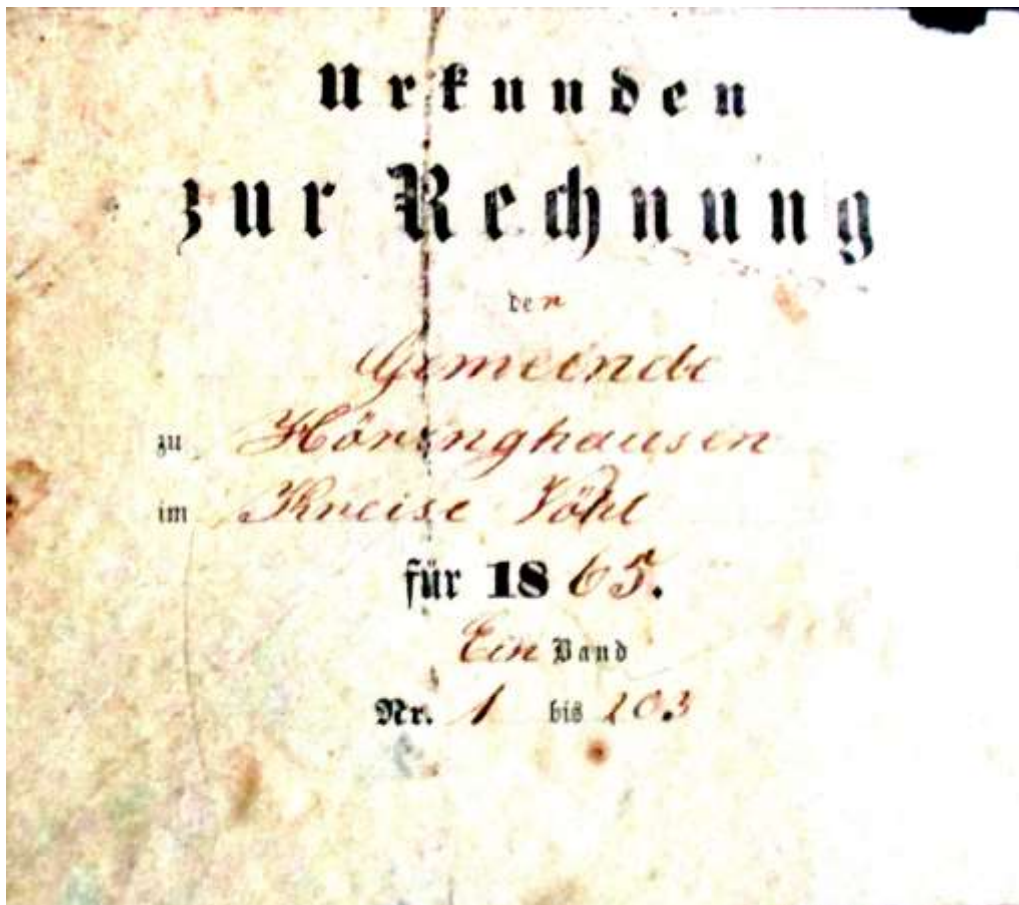 Urkunden
zur Rechnung
der
Gemeinde
zu Höringhausen
im Kreise Vöhl
für 1865.
Ein Band
Nr. 1 bis 203